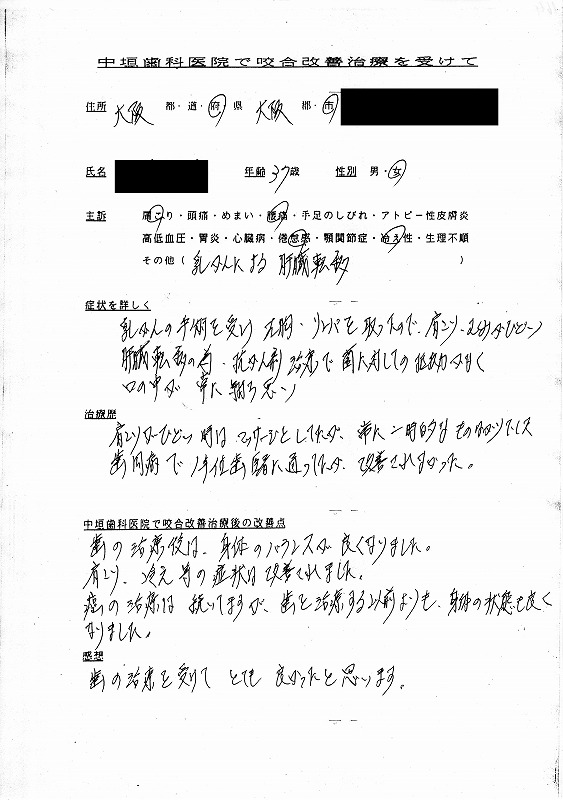 中垣歯科医院で咬合改善治療を受けて
住所 大阪 都・道・府・県 大阪 郡・市
氏名 年齢 37歳 性別 男・女
主訴 肩こり・頭痛・めまい・腰痛・手足のしびれ・アトピー性皮膚炎
高低血圧・胃炎・心臓病・倦怠感・顎関節症・冷え性・生理不順
その他（ 乳がんによる 肝臓転移 ）
症状を詳しく
乳がんの手術を受け 左胸・リンパを取ったので、肩こり、がひどい
肝臓転移の為、抗がん剤治療で菌に対しての抵抗力がなく
口の中が 常に 思い
治療歴
肩こりがひどい時はマッサージとしてたが、常に一時的なものでした
歯周病で 半年位歯医者に通ってたが、改善されなかった。
中垣歯科医院で咬合改善治療後の改善点
歯の治療後は、身体のバランスが良くなりました。
肩こり、冷え等の症状は改善されました。
癌の治療は続いてますが、歯を治療する以前よりも、身体の状態も良く
なりました。
感想
歯の治療を受けて とても 良かったと思います。